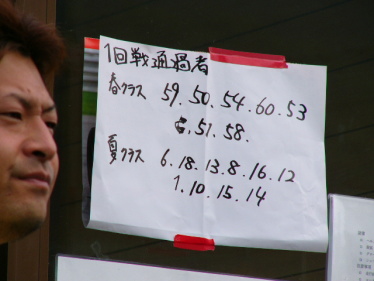 1回戦通過者
春クラス 59.50.54.60.53
51.58.
夏クラス 6.18.13.8.16.12
1.10.15.14